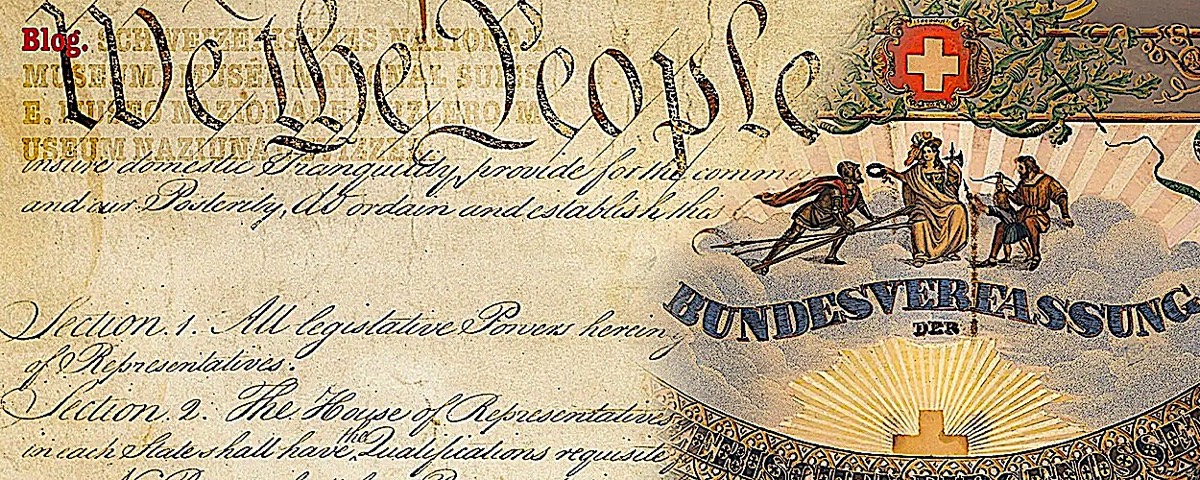 Blog. SCHWEIZERISCHES NATIONAL
MUSEUM. MUSÉE NATIONAL SUISS
E. MUSEO NAZIONALE SVIZZERO. M
USEUM NAZIUNAL SVIZZER.
We the People
insure domestic Tranquility, provide for the common
and our Posterity, do ordain and establish this
Section. 1. All legislative Powers herein
of Representatives.
Section. 2. The House of Representatives
in each State shall have the Qualifications requisite
BUNDESVERFASSUNG
DER